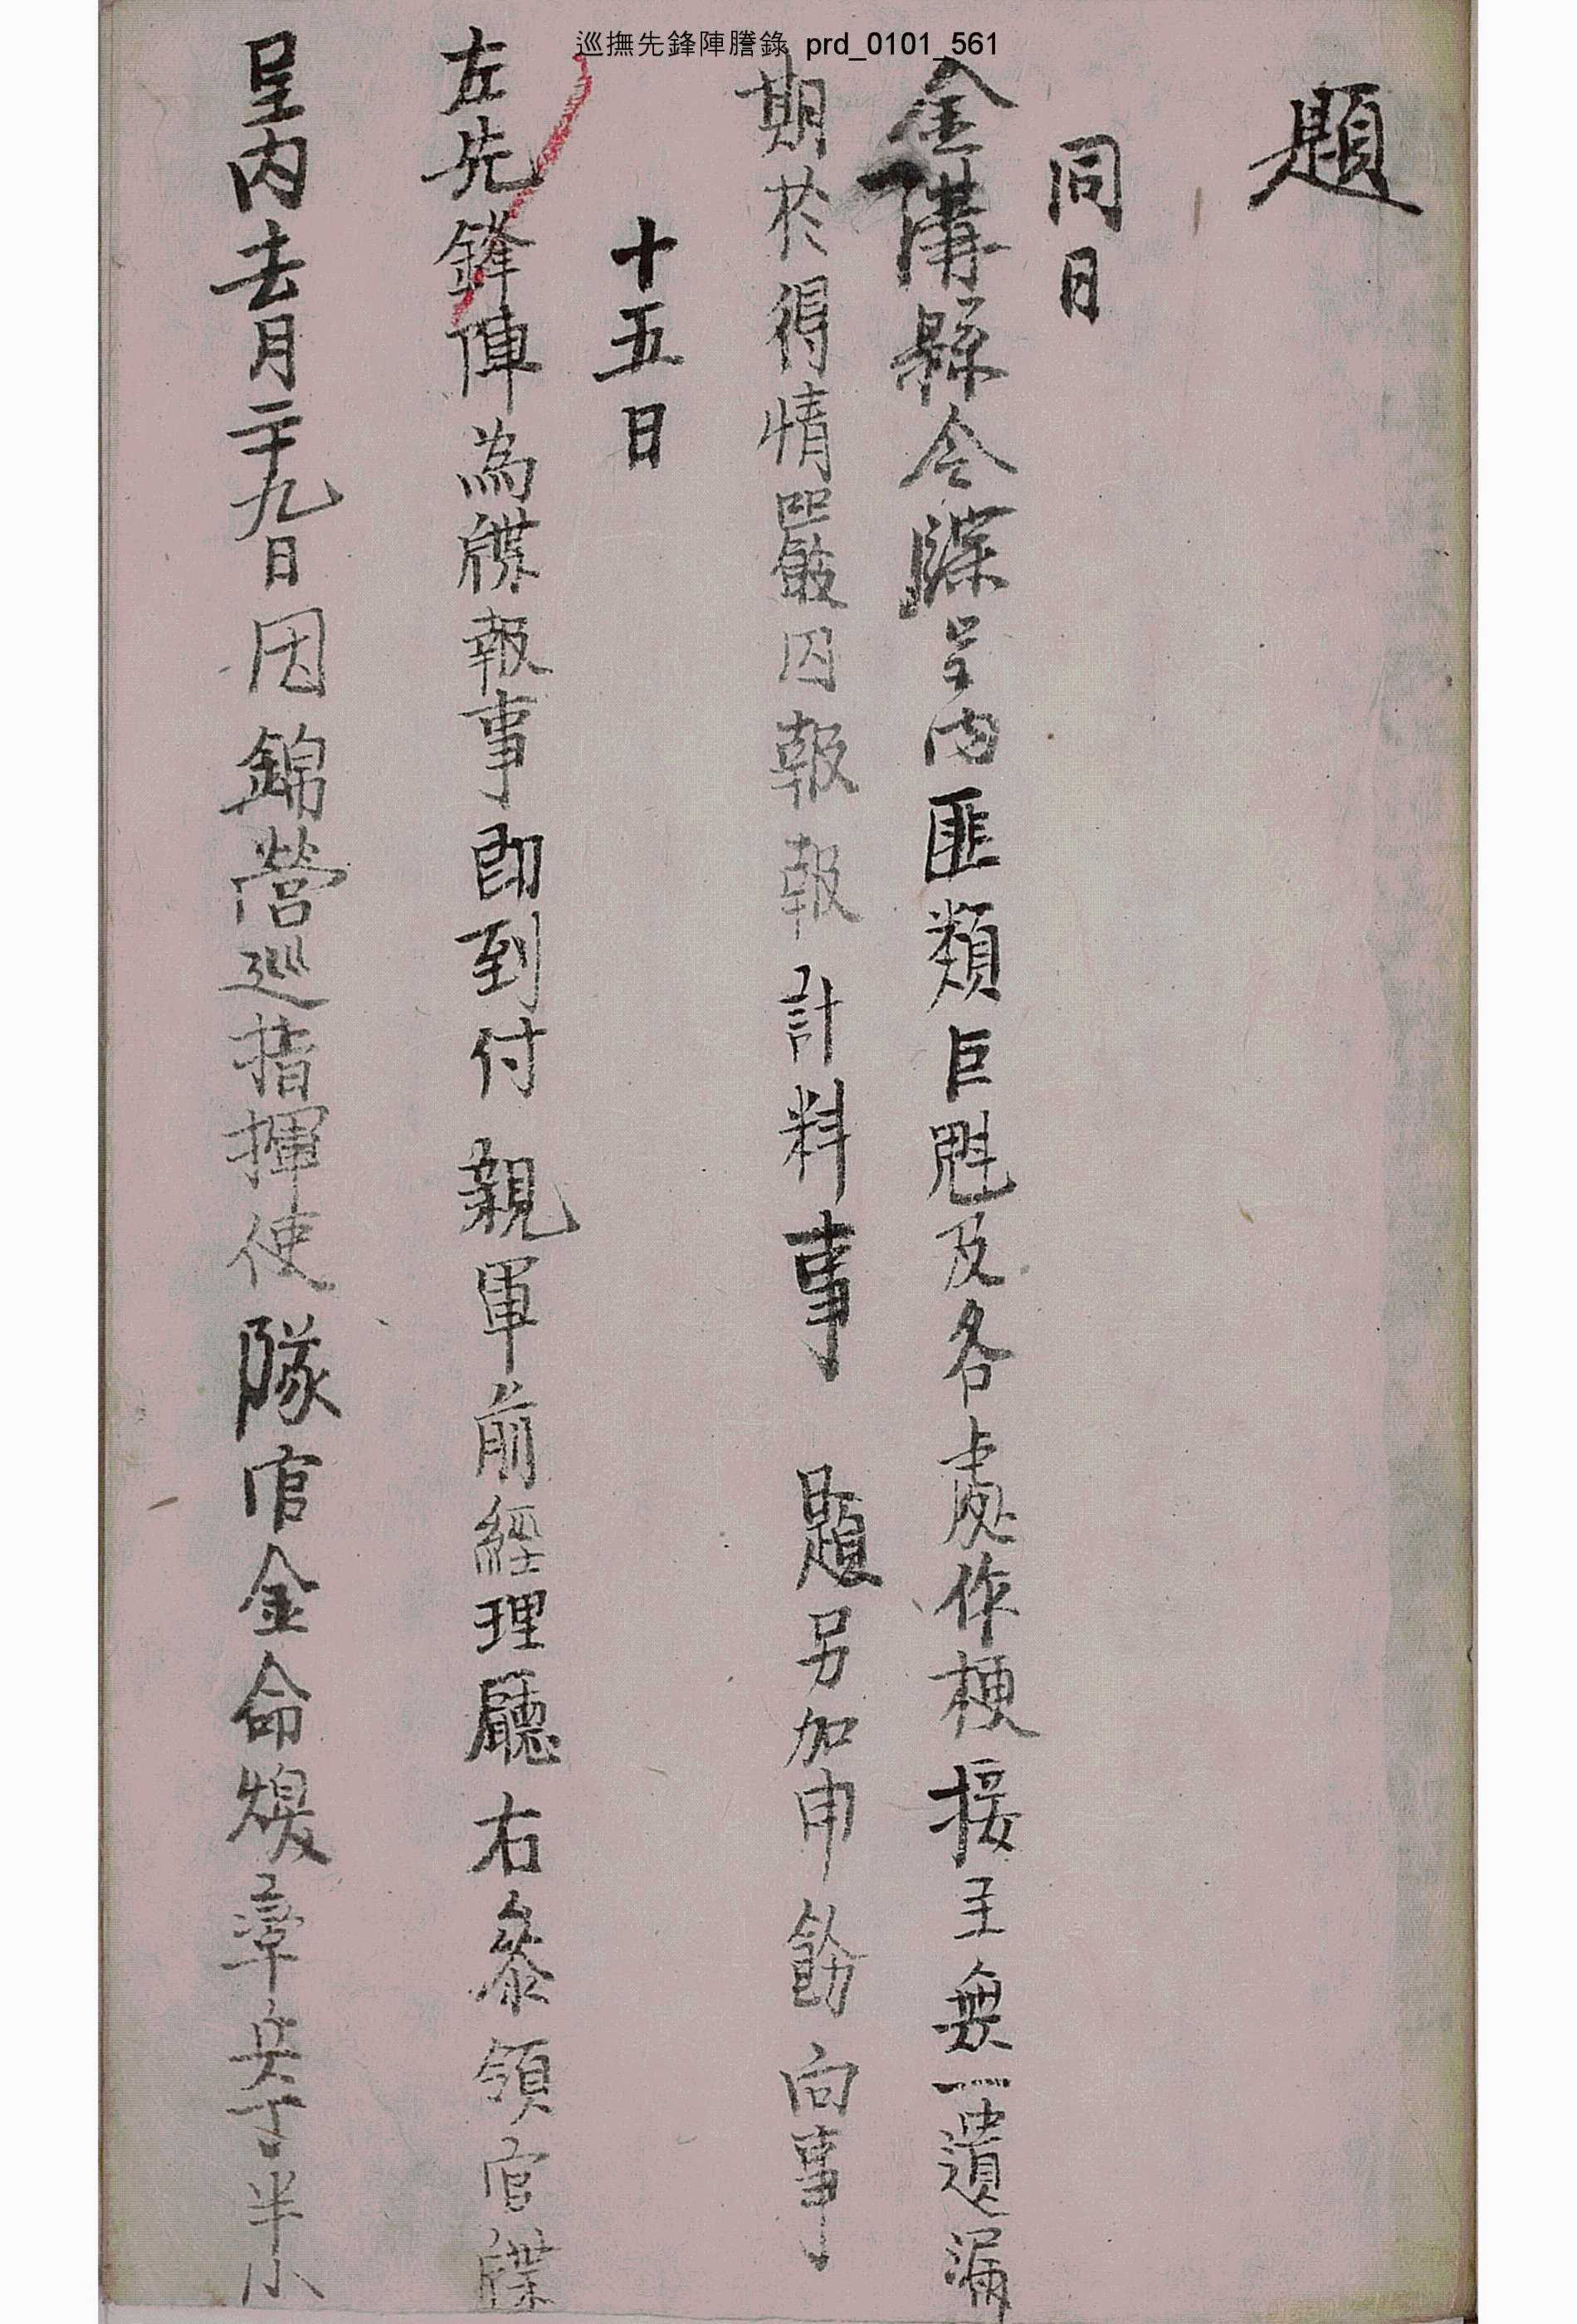 巡撫先鋒陣謄錄 prd_0101_561
題
同日
金溝縣令牒呈內匪類巨魁及各處作梗接主無一遺漏
期於得情嚴囚報報計料事 題另加申飭向事
十五日
左先鋒陣為牒報事即到付 親軍前經理廳右參領官牒
呈內去月二十九日因錦營巡指揮使隊官金命煥率兵丁半小